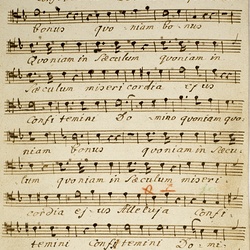 bonus quoniam bonus
Quoniam in Sæculum quoniam in
Sæculum misericordia ejus
Confitemini Domino quoniam quo
niam bonus quoniam in Sæcu
lum quoniam in Sæculum miseri
cordia ejus Alleluja Confi
temini Confitemini Domi